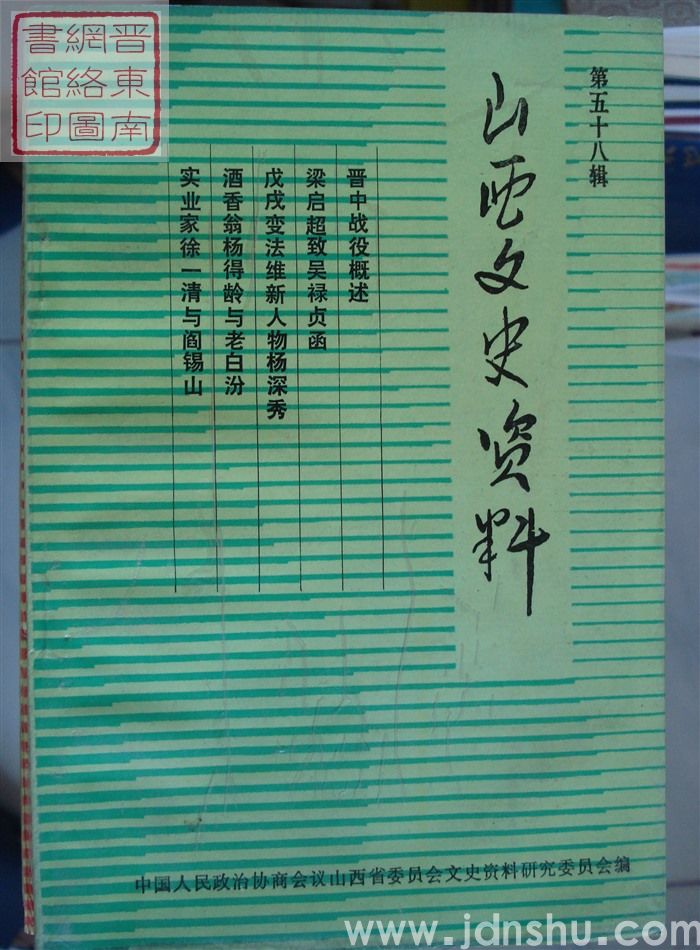 晋東南
網絡圖
書館印
第五十八辑
山西文史资料
晋中战役概述
梁启超致吴禄贞函
戊戌变法维新人物杨深秀
酒香翁杨得龄与老白汾
实业家徐一清与阎锡山
中国人民政治协商会议山西省委员会文史资料研究委员会编
www.jdnshu.com